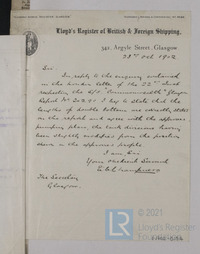 Lloyd's Register of British & Foreign Shipping.
342, Argyle Street, Glasgow
23rd Oct 1902
Sir
In reply to the enquiry contained
in the London letter of the 22nd inst
respecting the S/S "Commonwealth" Glasgow
Report No I beg to state that the
lengths of double bottom are correctly stated
in the report and agree with the approved
pumping plan, the tank divisions having
been slightly modified from the position
shewn in the approved profile
I am Sir
Your obedient Servant
The Secretary
Glasgow.
© 2021
Lloyd's Register
Foundation